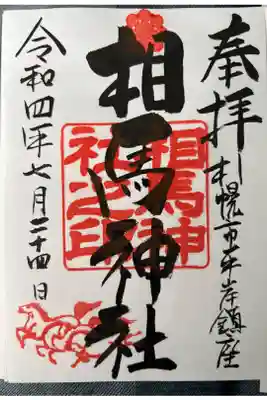 奉拝 札幌市平岸鎮座
相馬神社
相馬神社之印
令和四年七月二十四日